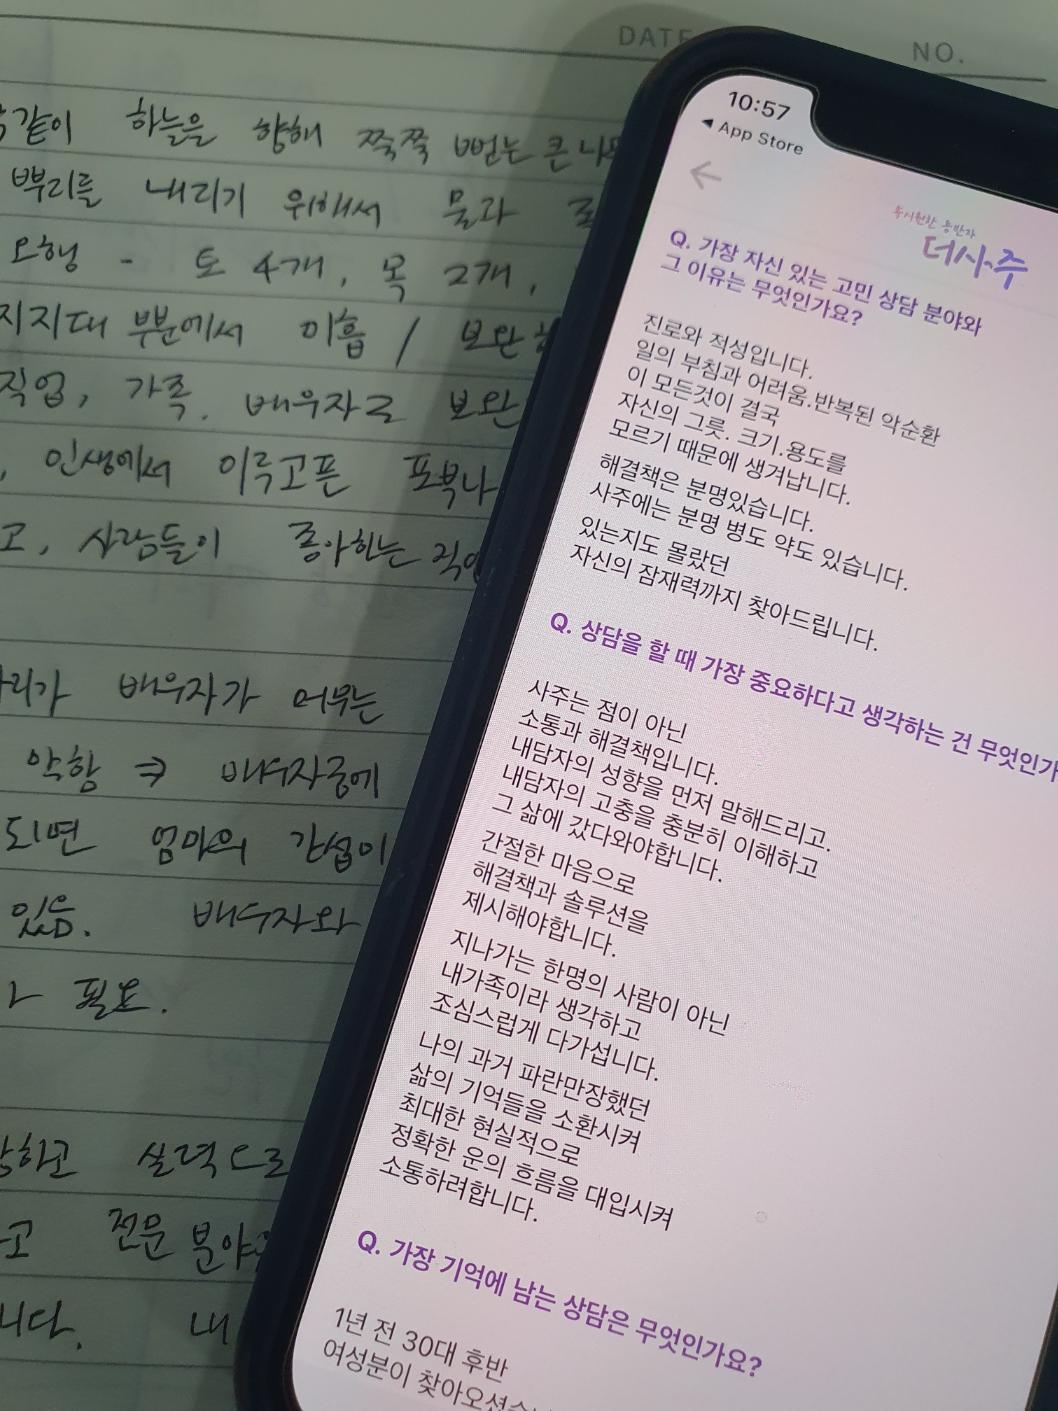 DATE
NO.
같이 하늘을 향해 쭉쭉 뻗는 큰
뿌리를 내리기 위해서 물과
오행 - 토 4개, 목 2개,
지지대 부분에서 이흡 /
직업, 가족, 배우자로 보완
, 인생에서 이루고픈 포부나
고, 사람들이 좋아하는
배우자가 머무는
악항 ⇒ 배우자궁에
되면 엄마의 간섭이
있음. 배우자와
필요.
실력으로
고 전문 분야
니다. 내
10:57
◀ App Store
속시원한 동반자
더사주
Q. 가장 자신 있는 고민 상담 분야와
그 이유는 무엇인가요?
진로와 적성입니다.
일의 부침과 어려움.반복된 악순환
이 모든것이 결국
자신의 그릇. 크기.용도를
모르기 때문에 생겨납니다.
해결책은 분명있습니다.
사주에는 분명 병도 약도 있습니다.
있는지도 몰랐던
자신의 잠재력까지 찾아드립니다.
Q. 상담을 할 때 가장 중요하다고 생각하는 건 무엇인가
사주는 점이 아닌
소통과 해결책입니다.
내담자의 성향을 먼저 말해드리고.
내담자의 고충을 충분히 이해하고
그 삶에 갔다와야합니다.
간절한 마음으로
해결책과 솔루션을
제시해야합니다.
지나가는 한명의 사람이 아닌
내가족이라 생각하고
조심스럽게 다가섭니다.
나의 과거 파란만장했던
삶의 기억들을 소환시켜
최대한 현실적으로
정확한 운의 흐름을 대입시켜
소통하려합니다.
Q. 가장 기억에 남는 상담은 무엇인가요?
1년 전 30대 후반
여성분이 찾아오셨